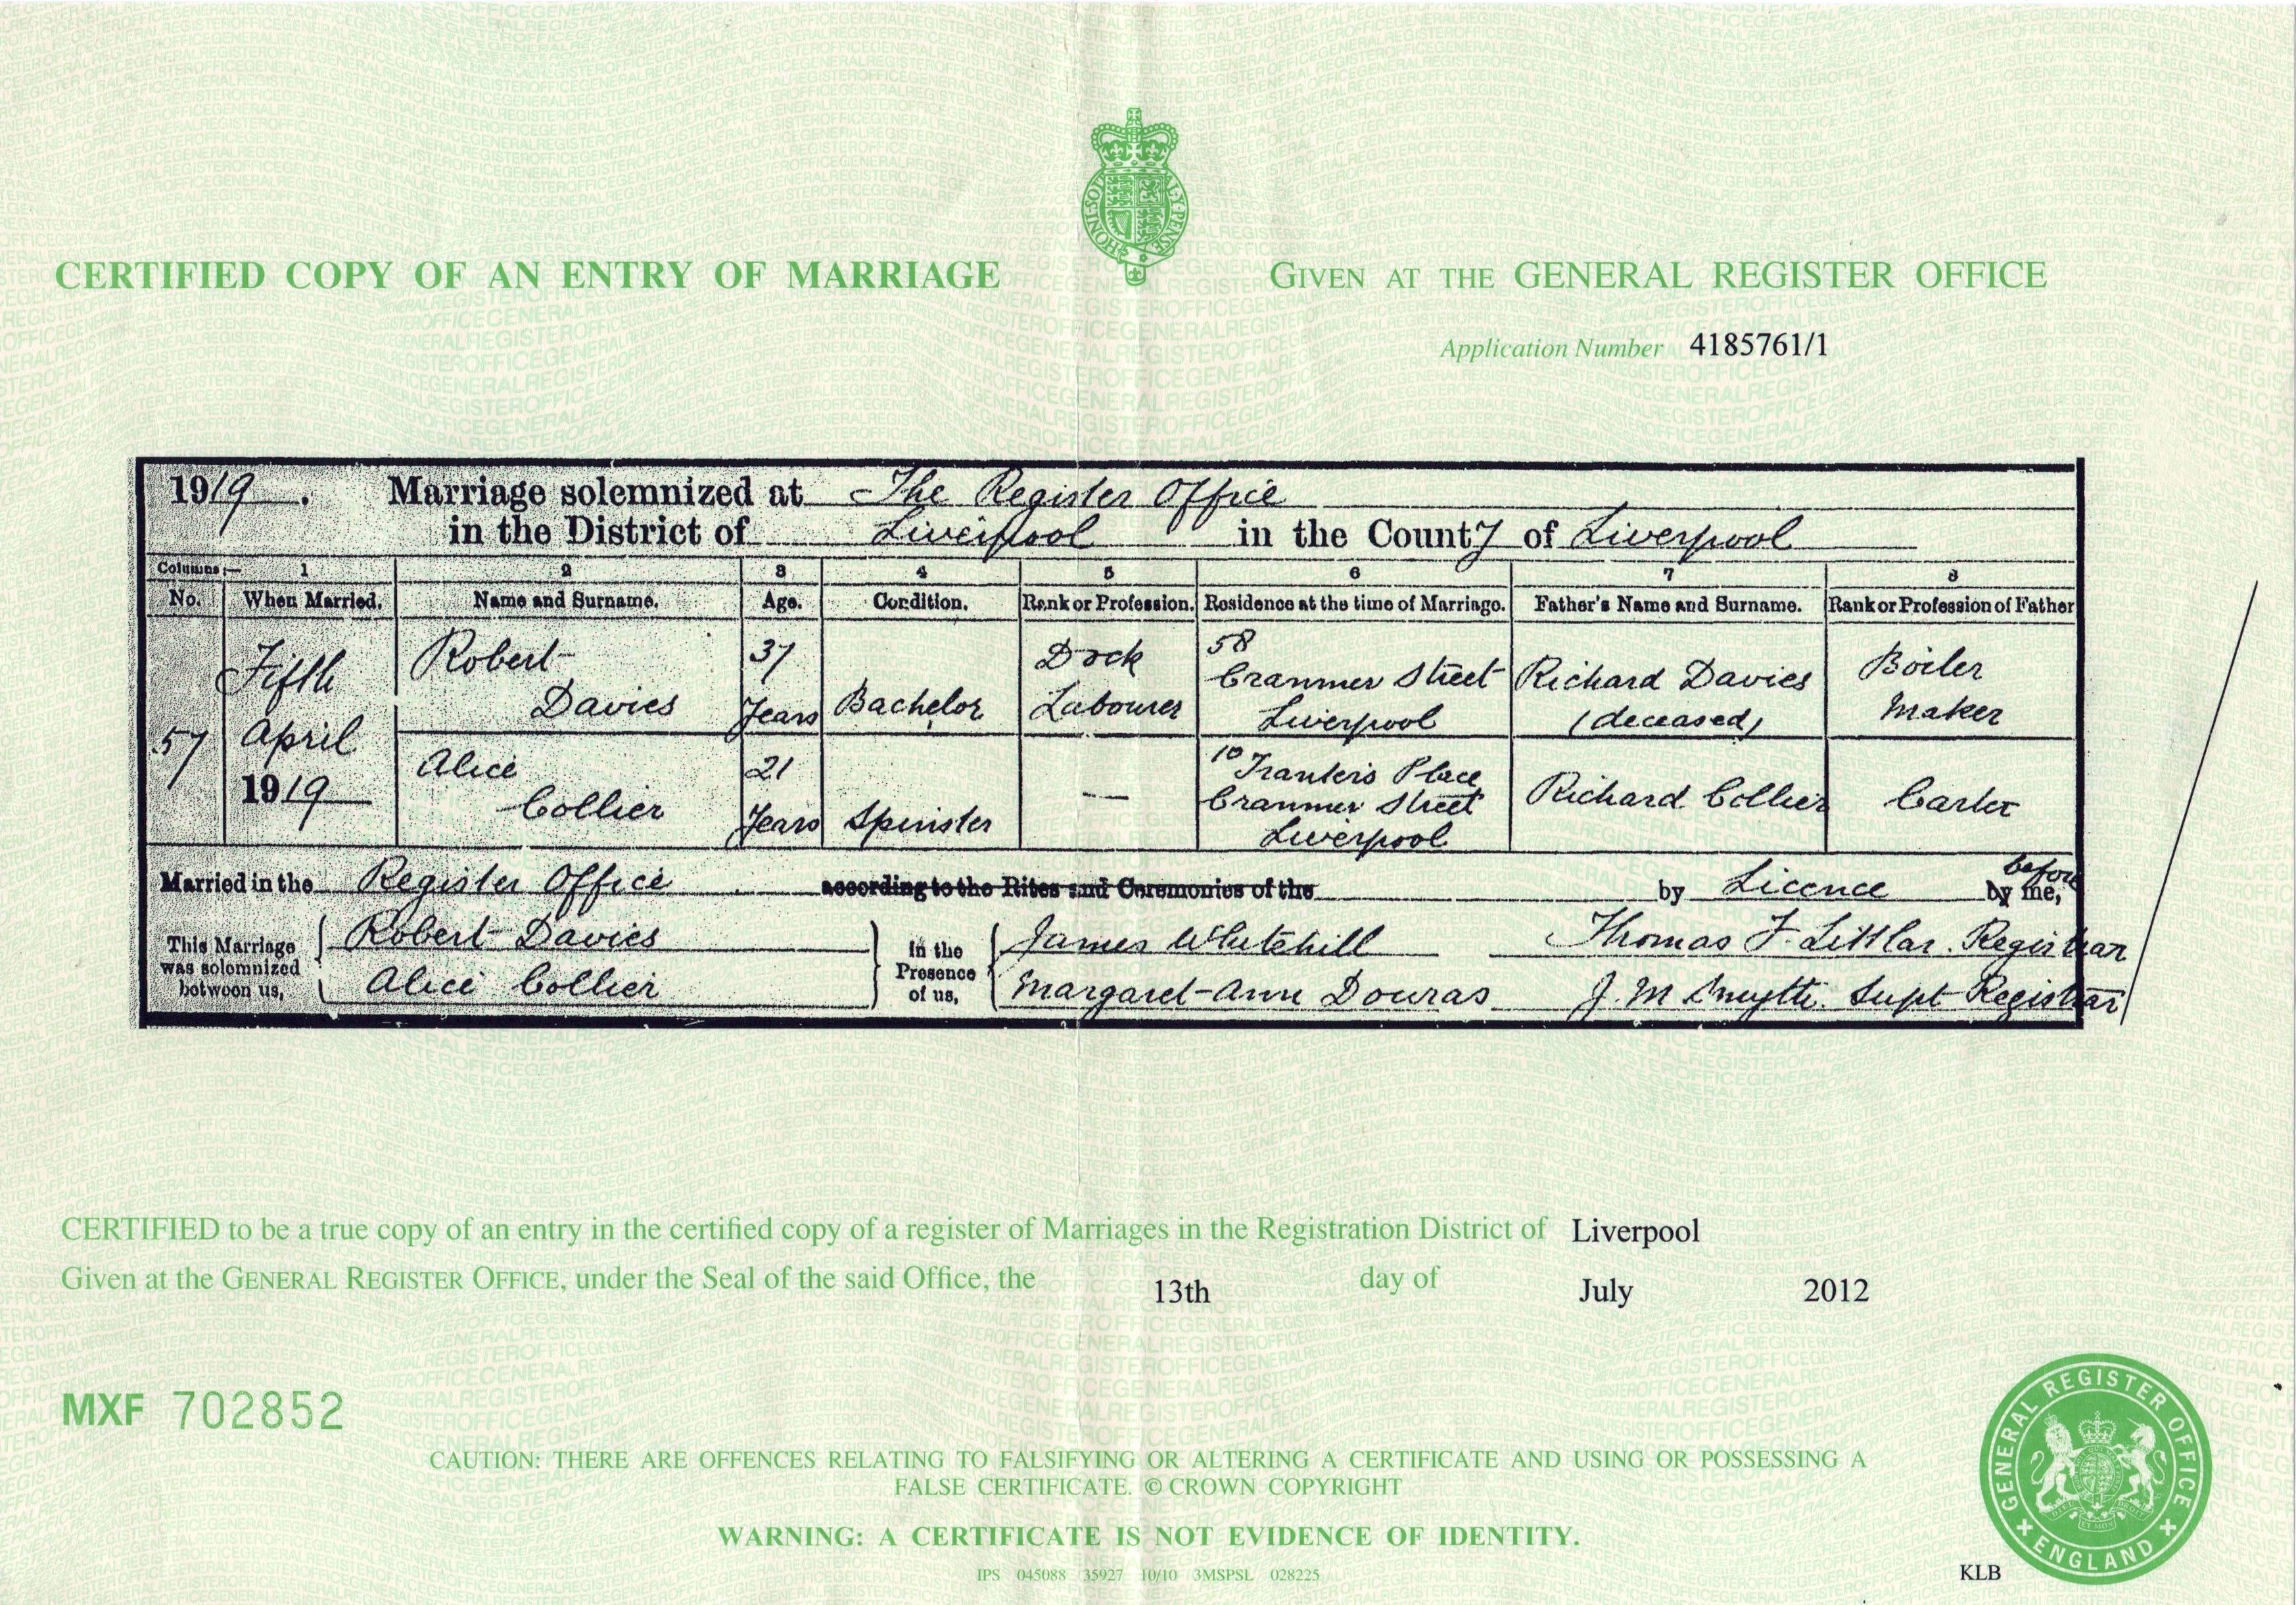 CERTIFIED COPY OF AN ENTRY OF MARRIAGE
GIVEN AT THE GENERAL REGISTER OFFICE
Application Number 4185761/1
1919. Marriage solemnized at The Register Office
in the District of Liverpool in the County of Liverpool
Columns:— 1 2 3 4 5 6 7 8
No. When Married. Name and Surname. Age. Condition. Rank or Profession. Residence at the time of Marriage. Father's Name and Surname. Rank or Profession of Father
57
Fifth
April
1919
Robert
Davies
37
Years
Bachelor
Dock
Labourer
58
Cranmer Street
Liverpool
Richard Davies
(deceased)
Boiler
Maker
Alice
Collier
21
Years
Spinster
—
10
Place
Cranmer Street
Liverpool
Richard Collier
Carter
Married in the Register Office according to the Rites and Ceremonies of the by Licence before
by me,
This Marriage
was solemnized
between us,
Robert Davies
Alice Collier
in the
Presence
of us,
James Whitehill
Margaret-Ann Douras
Thomas F. Littlar. Registrar
J. M Smyth. Supt Registrar
CERTIFIED to be a true copy of an entry in the certified copy of a register of Marriages in the Registration District of Liverpool
Given at the GENERAL REGISTER OFFICE, under the Seal of the said Office, the 13th day of July 2012
MXF 702852
CAUTION: THERE ARE OFFENCES RELATING TO FALSIFYING OR ALTERING A CERTIFICATE AND USING OR POSSESSING A
FALSE CERTIFICATE. © CROWN COPYRIGHT
WARNING: A CERTIFICATE IS NOT EVIDENCE OF IDENTITY.
IPS 045088 35927 10/10 3MSPSL 028225
KLB
GENERAL REGISTER OFFICE
ENGLAND